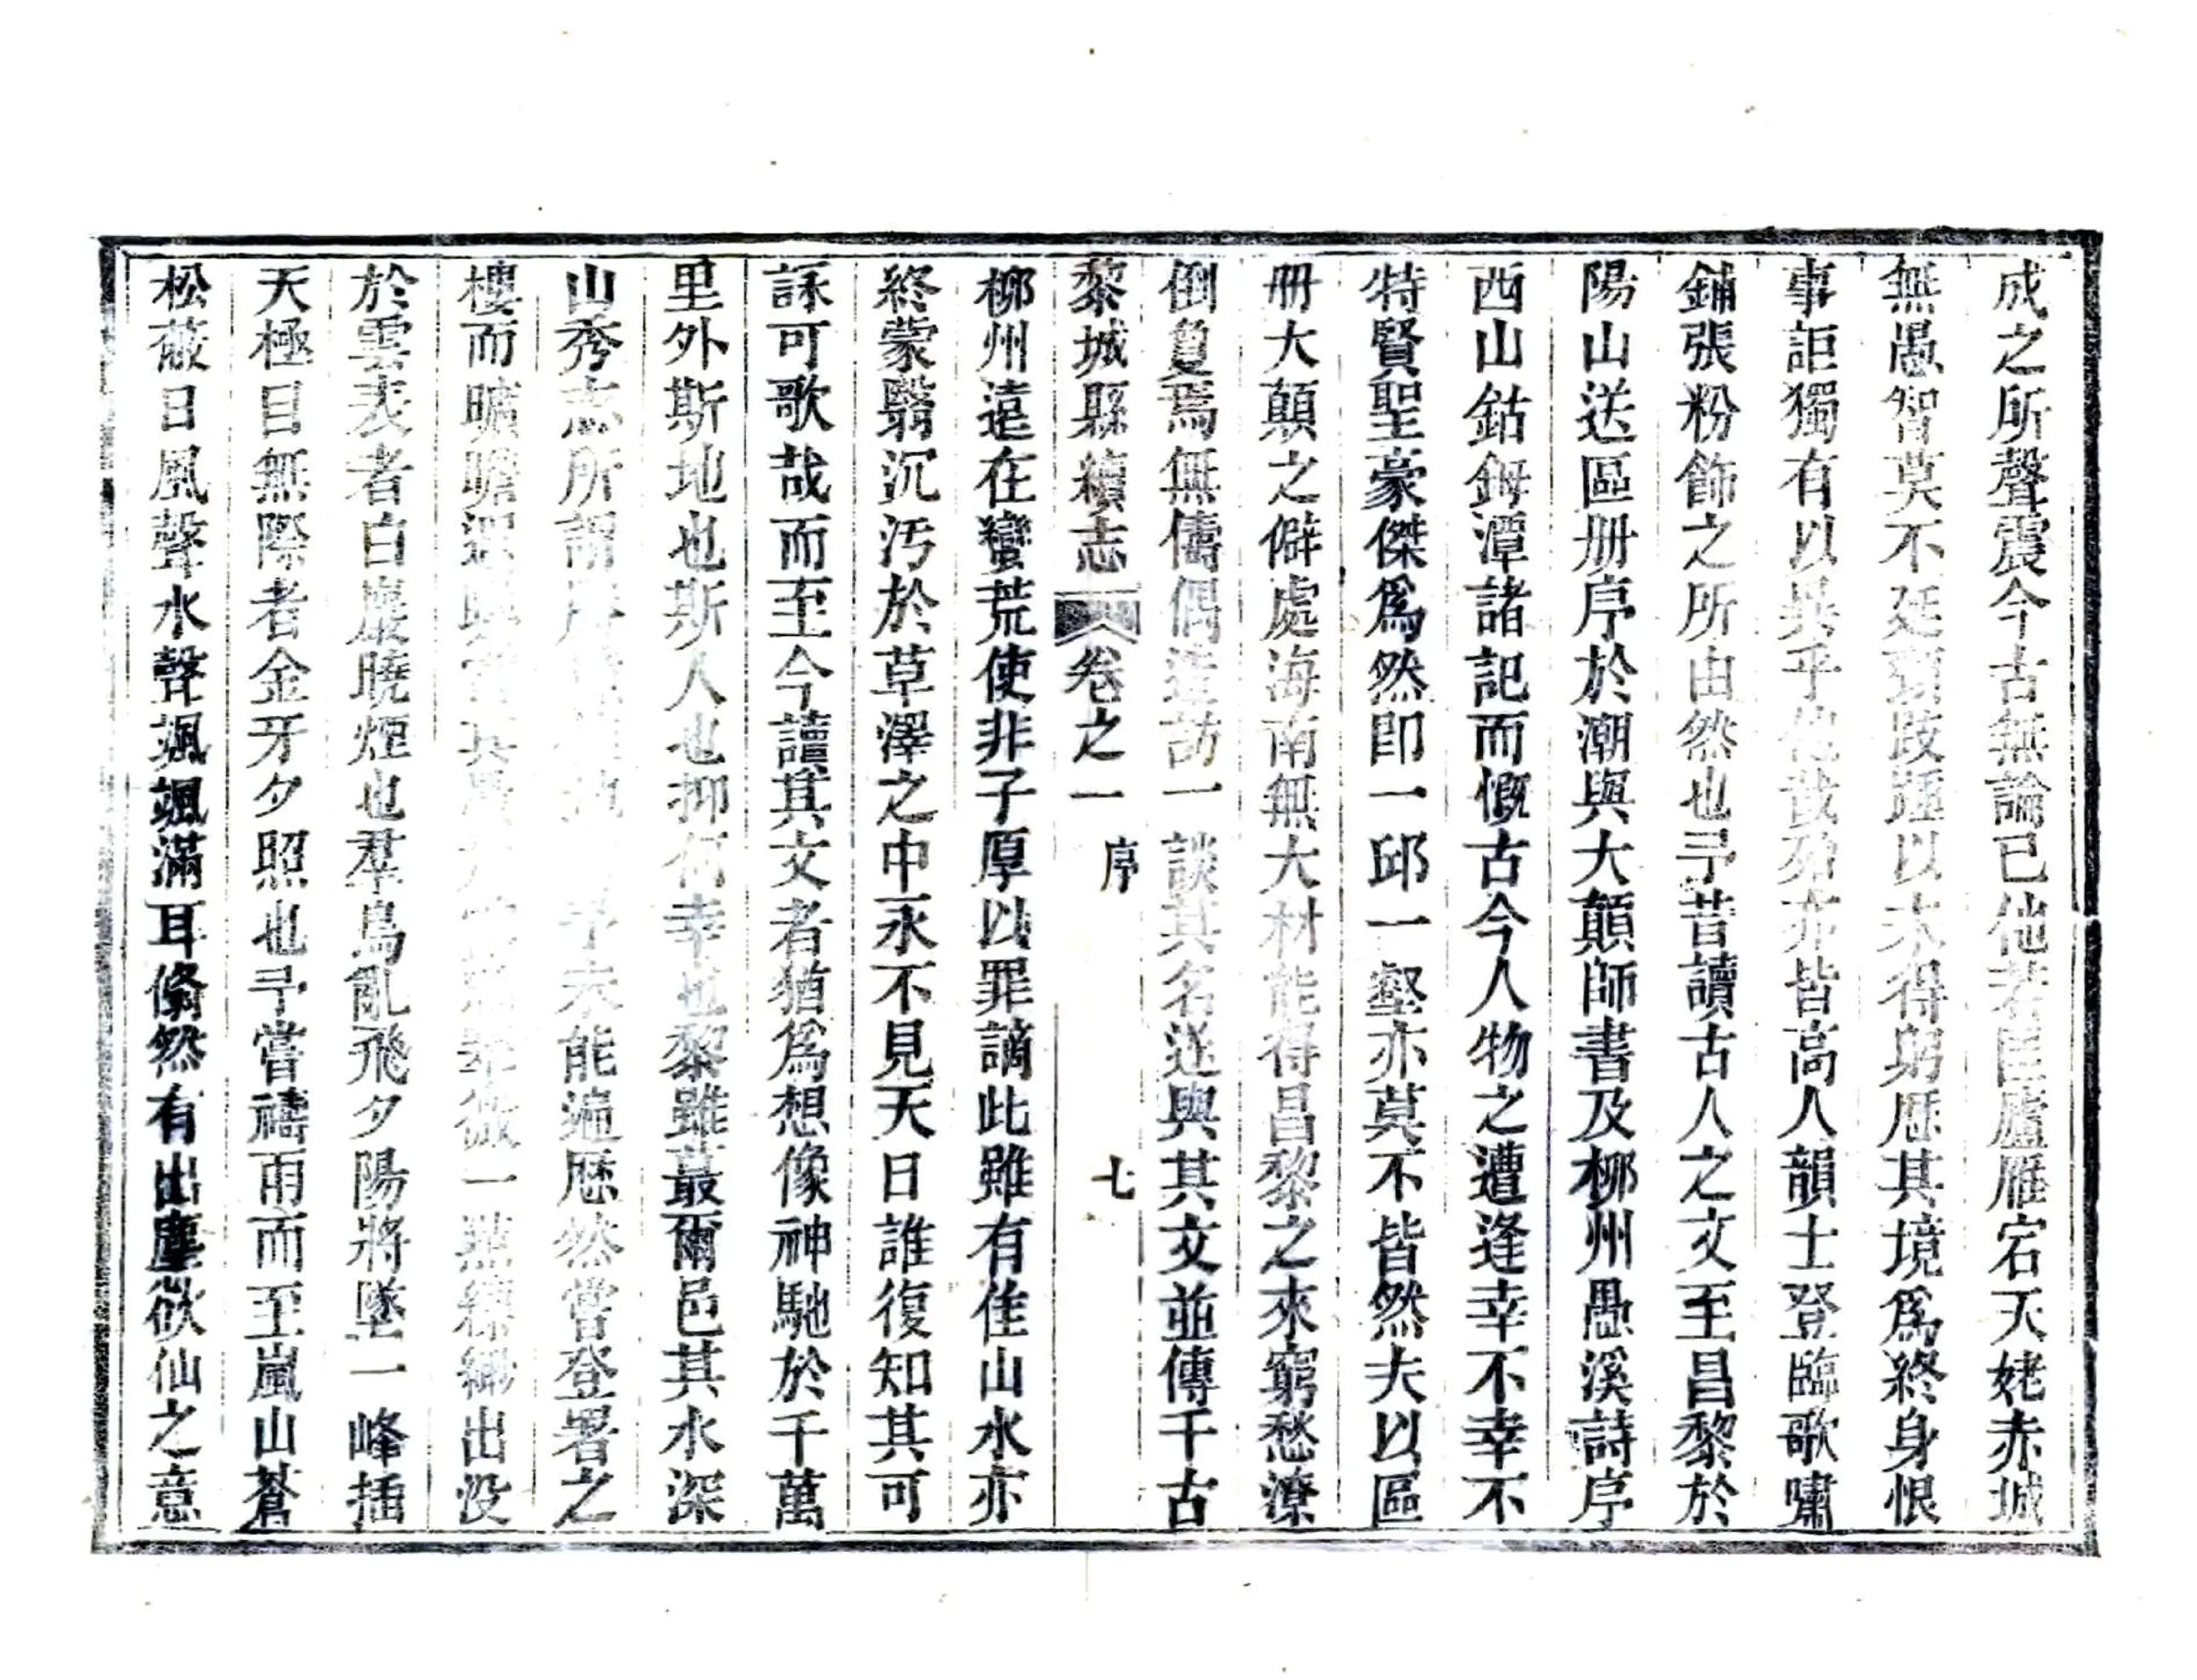 成之所聲震今古無論已他若匡廬雁宕天姥赤城
無愚智莫不延頸跂踵以未得躬歷其境爲終身恨
事詎獨有以異乎他哉殆亦皆高人韻士登臨歌嘯
鋪張粉飾之所由然也予昔讀古人之文至昌黎於
陽山送區册序於潮與大顛師書及柳州愚溪詩序
西山鈷鉧潭諸記而慨古今人物之遭逢幸不幸不
特賢聖豪傑爲然卽一邱一壑亦莫不皆然夫以區
册大顛之僻處海南無大材能得昌黎之來窮愁潦
倒夐焉無儔偶造訪一談其名遂與其文並傳千古
黎城縣續志 卷之一 序 七
柳州遠在蠻荒使非子厚以罪謫此雖有佳山水亦
終蒙翳沉汚於草澤之中永不見天日誰復知其可
詠可歌哉而至今讀其文者猶爲想像神馳於千萬
里外斯地也斯人也抑何幸也黎雖蕞爾邑其水深
山秀志所謂 予未能遍歷然嘗登署之
樓而曠瞻 其 一點縹緲出没
於雲表者白巖曉煙也羣鳥亂飛夕陽將墜一峰插
天極目無際者金牙夕照也予嘗禱雨而至嵐山蒼
松蔽日風聲水聲颯颯滿耳翛然有出塵欲仙之意